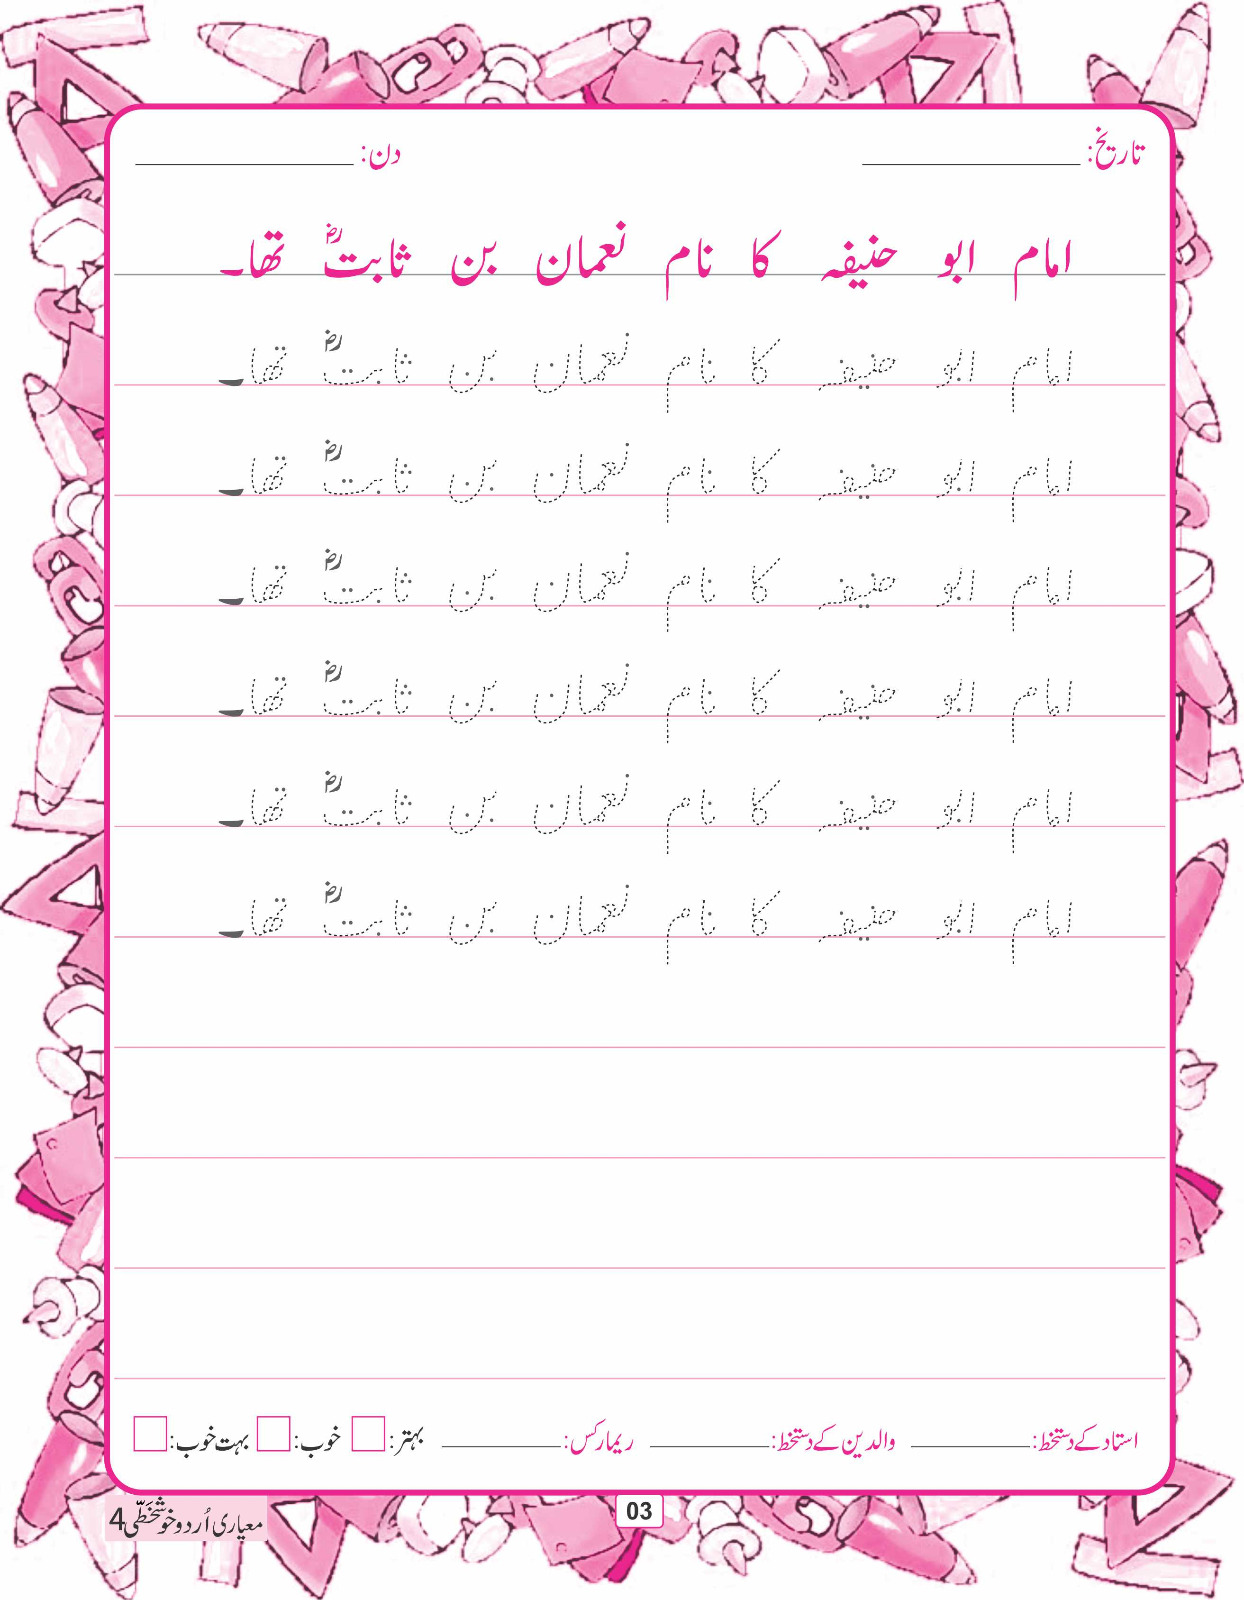 تاریخ: ____________ دن: ____________
امام ابو حنیفہ کا نام نعمان بن ثابتؓ تھا۔
امام ابو حنیفہ کا نام نعمان بن ثابتؓ تھا۔
امام ابو حنیفہ کا نام نعمان بن ثابتؓ تھا۔
امام ابو حنیفہ کا نام نعمان بن ثابتؓ تھا۔
امام ابو حنیفہ کا نام نعمان بن ثابتؓ تھا۔
امام ابو حنیفہ کا نام نعمان بن ثابتؓ تھا۔
امام ابو حنیفہ کا نام نعمان بن ثابتؓ تھا۔
استاد کے دستخط: ________ والدین کے دستخط: ________ ریمارکس: ________ بہتر: خوب: بہت خوب:
03
معیاری اُردو خوشخطّی 4